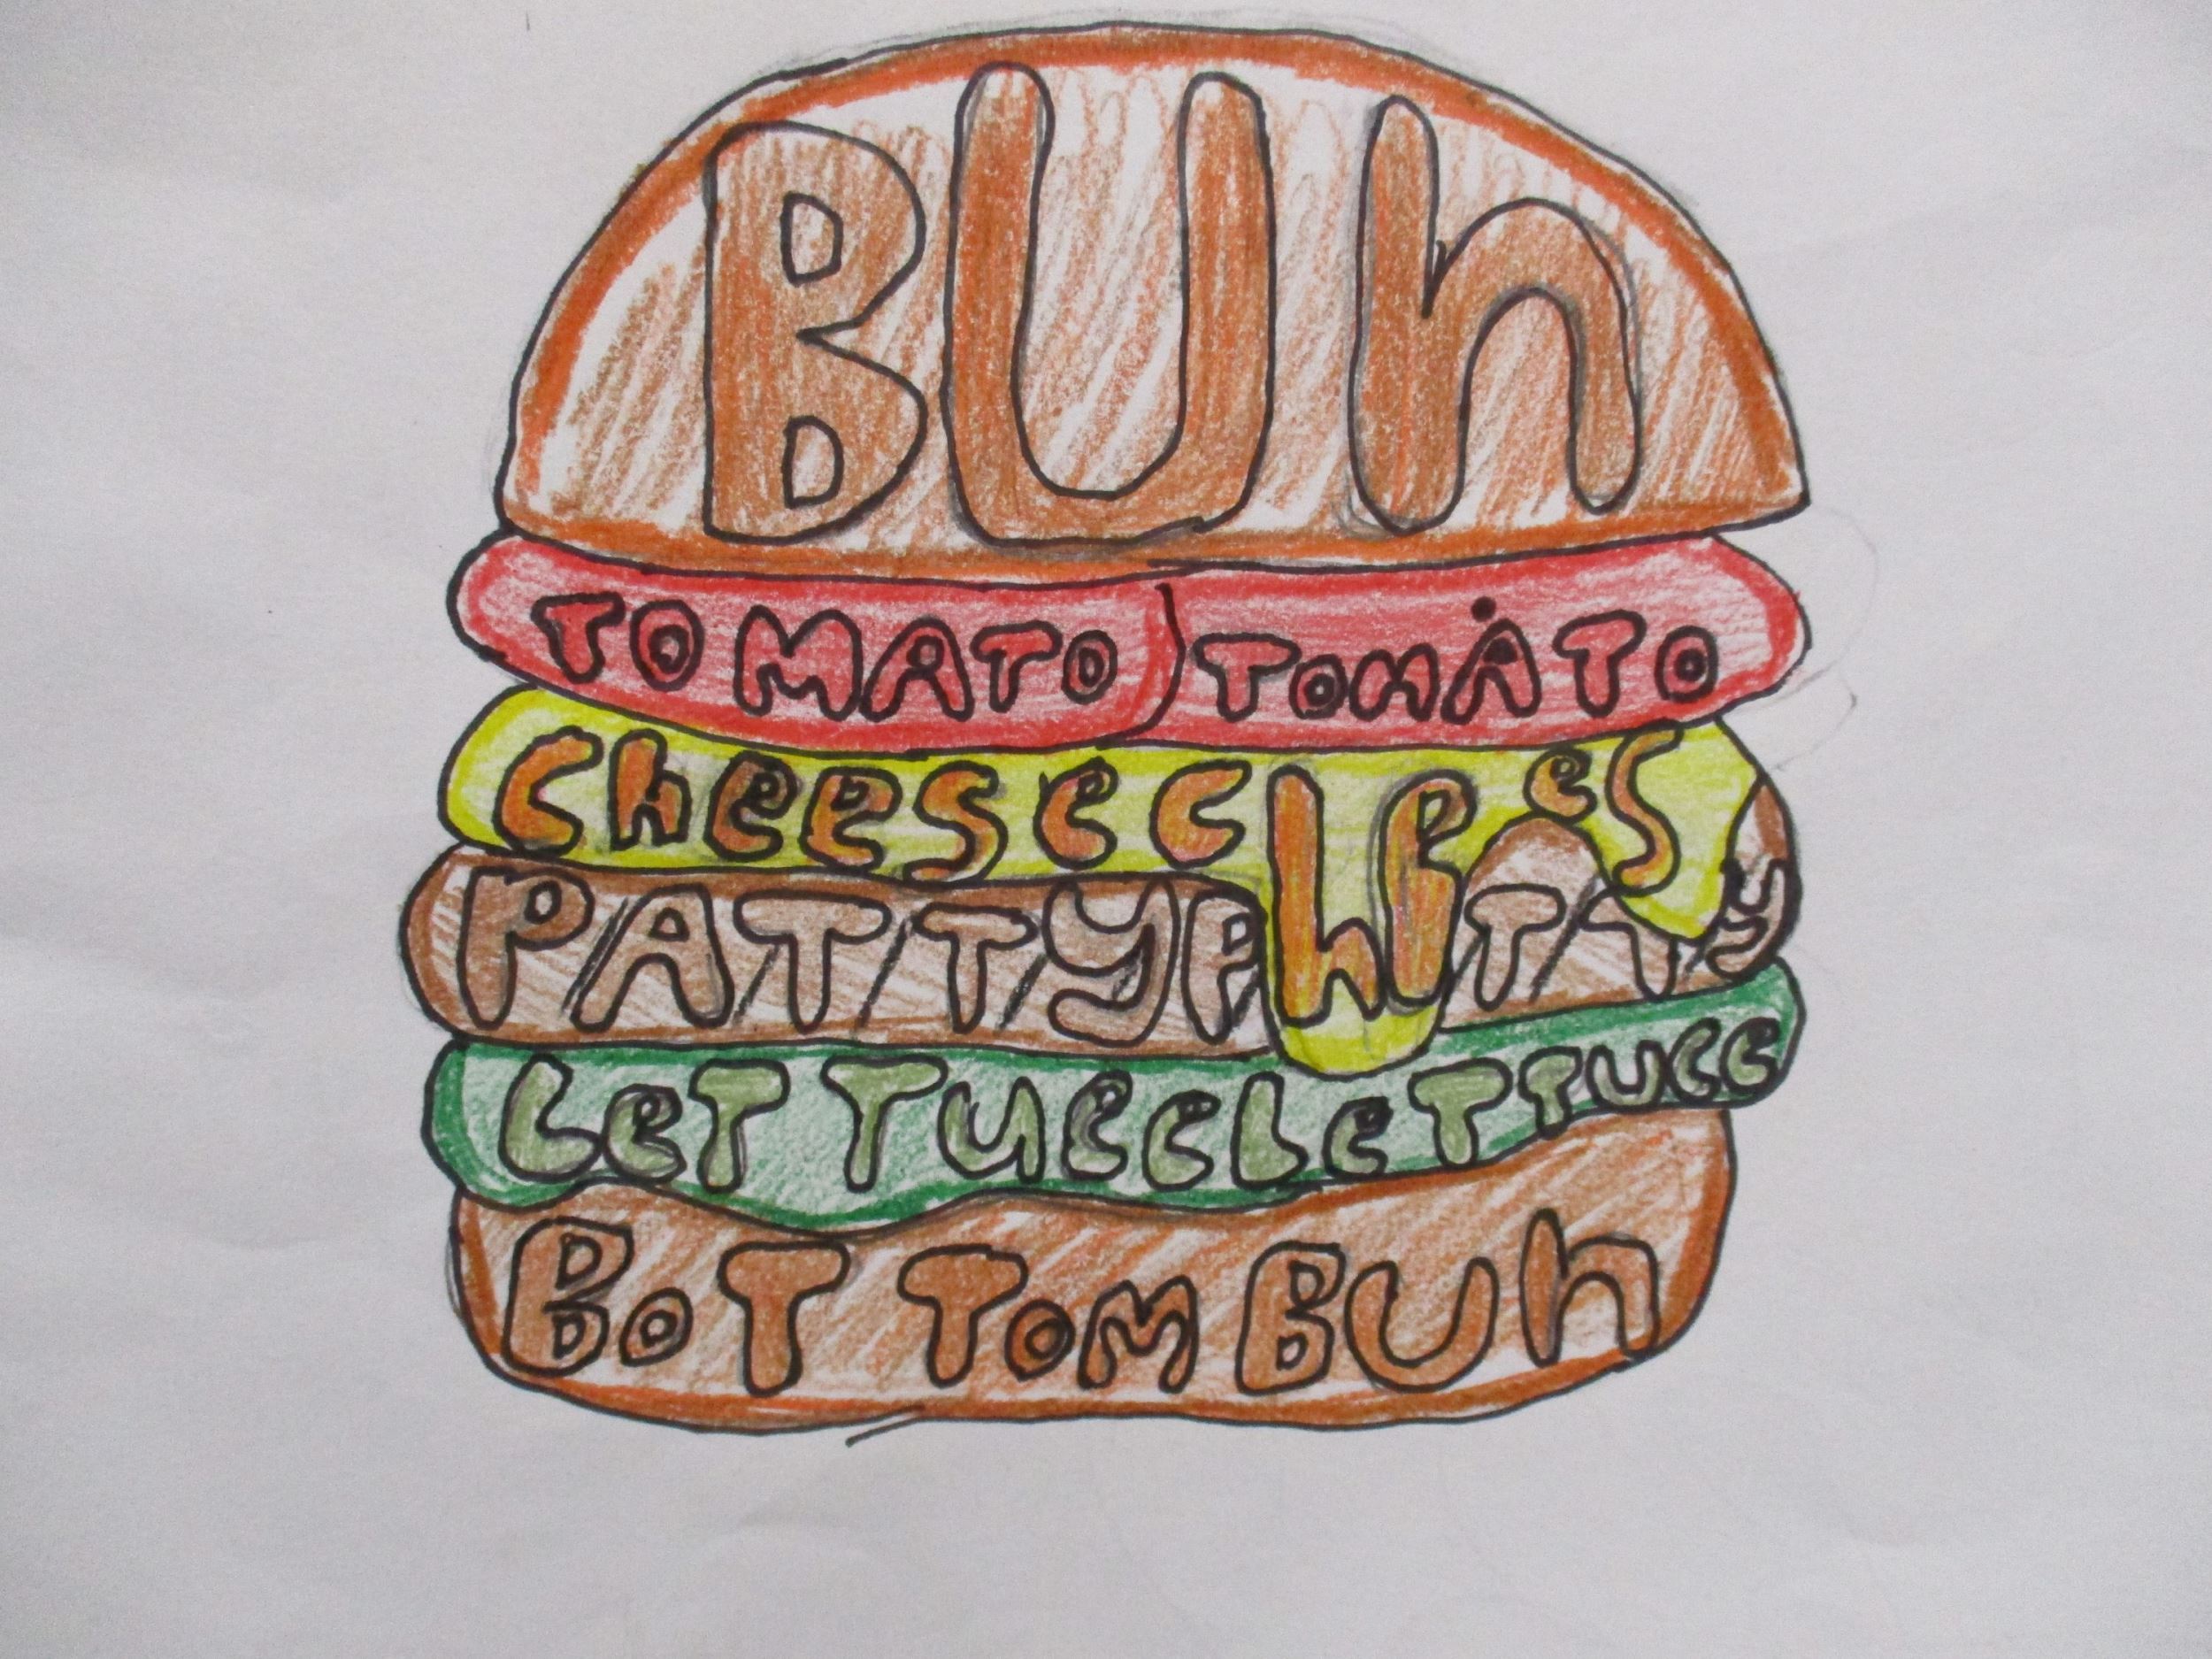 BUn
TOMATO TOMATO
Cheese chees
PATTYP TTy
LeTTUceLeTTUce
BoTTOM BUn